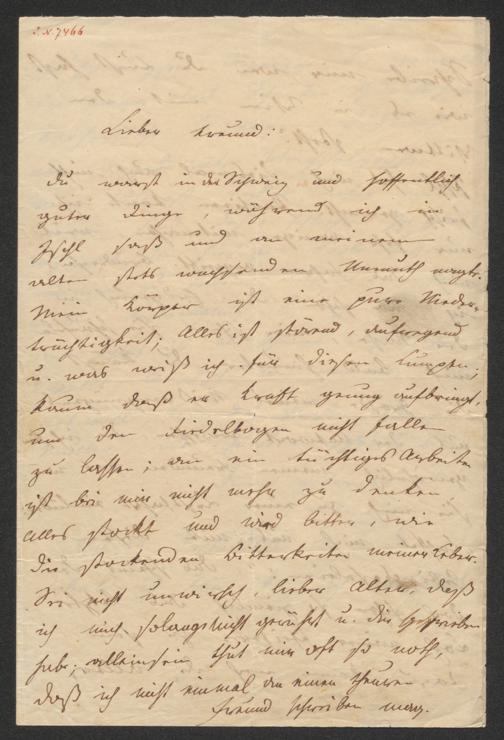 I.N. 7466
Lieber Freund!
Du warst in der Schweiz und hoffentlich
guter Dinge, während ich in
Ischl saß und an meinem
alten stets wachsenden Unmuth nagte.
Mein Körper ist eine pure Nieder-
trächtigkeit; Alles ist störend, aufregend
u. was weiß ich für diesen Lumpen;
kaum daß er Kraft genug aufbringt,
um den Fiedelbogen nicht fallen
zu lassen; an ein tüchtiges Arbeiten
ist bei mir nicht mehr zu denken,
alles stockt und wird bitter, wie
die stockenden Bitterkeiten meiner Leber.
Sei nicht unwirsch, lieber Alter, daß
ich mich so lange nicht gerührt u. Dir geschrieben
habe; allein sein thut mir oft so noth,
daß ich nicht einmal an einen theuren
Freund schreiben mag.